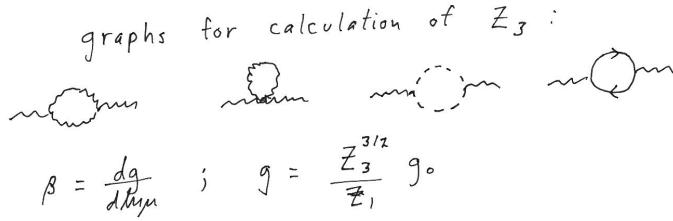 graphs for calculation of Z₃ :
β = dg/dlnμ ; g = Z₃^{3/2}/Z₁ g₀